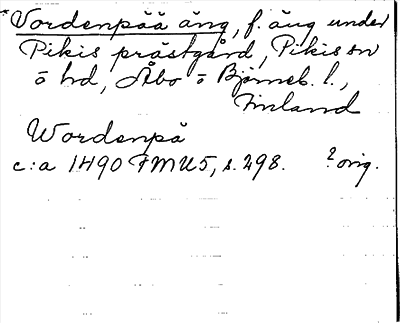 *Vordenpää äng, f. äng under
Pikis prästgård, Pikis sn
o hd, Åbo o Björneb. l.,
Finland
Wordenpä
c:a 1490 FMU5, s. 298. ? orig.